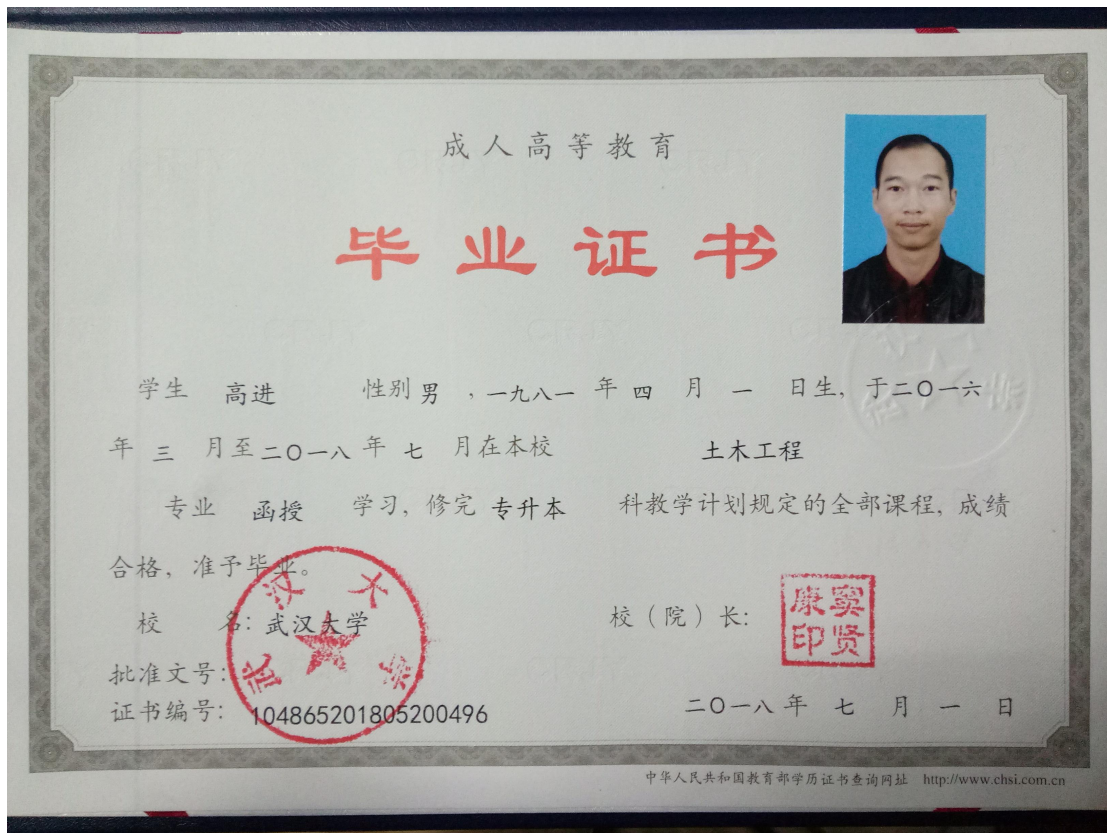 成人高等教育
毕业证书
学生 高进 性别 男 ，一九八一 年 四 月 一 日生，于二〇一六
年 三 月至二〇一八 年 七 月在本校 土木工程
专业 函授 学习，修完 专升本 科教学计划规定的全部课程，成绩
合格，准予毕业。
校 名：武汉大学
武汉大学
校（院）长：
窦贤康印
批准文号：
证书编号：104865201805200496
二〇一八 年 七 月 一 日
中华人民共和国教育部学历证书查询网址 http://www.chsi.com.cn